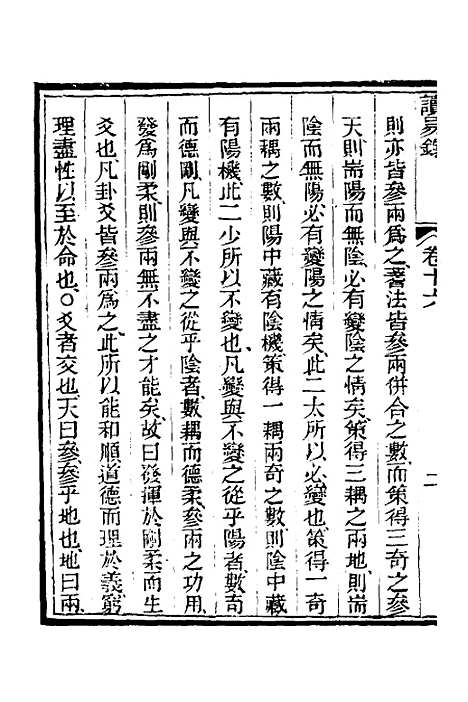 讀易錄
卷十六
二
則亦皆參兩爲之、蓍法皆參兩併合之數、而策得三奇之參
天、則耑陽而無陰、必有變陰之情矣、策得三耦之兩地、則耑
陰而無陽、必有變陽之情矣、此二太所以必變也、策得一奇
兩耦之數、則陽中藏有陰機、策得一耦兩奇之數、則陰中藏
有陽機、此二少所以不變也、凡變與不變之從乎陽者、數奇
而德剛、凡變與不變之從乎陰者、數耦而德柔、參兩之功用、
發爲剛柔、則參兩無不盡之才能矣、故曰發揮於剛柔而生
爻也、凡卦爻皆參兩爲之、此所以能和順道德而理於義、窮
理盡性以至於命也、○爻者交也、天曰參、參乎地也、地曰兩、